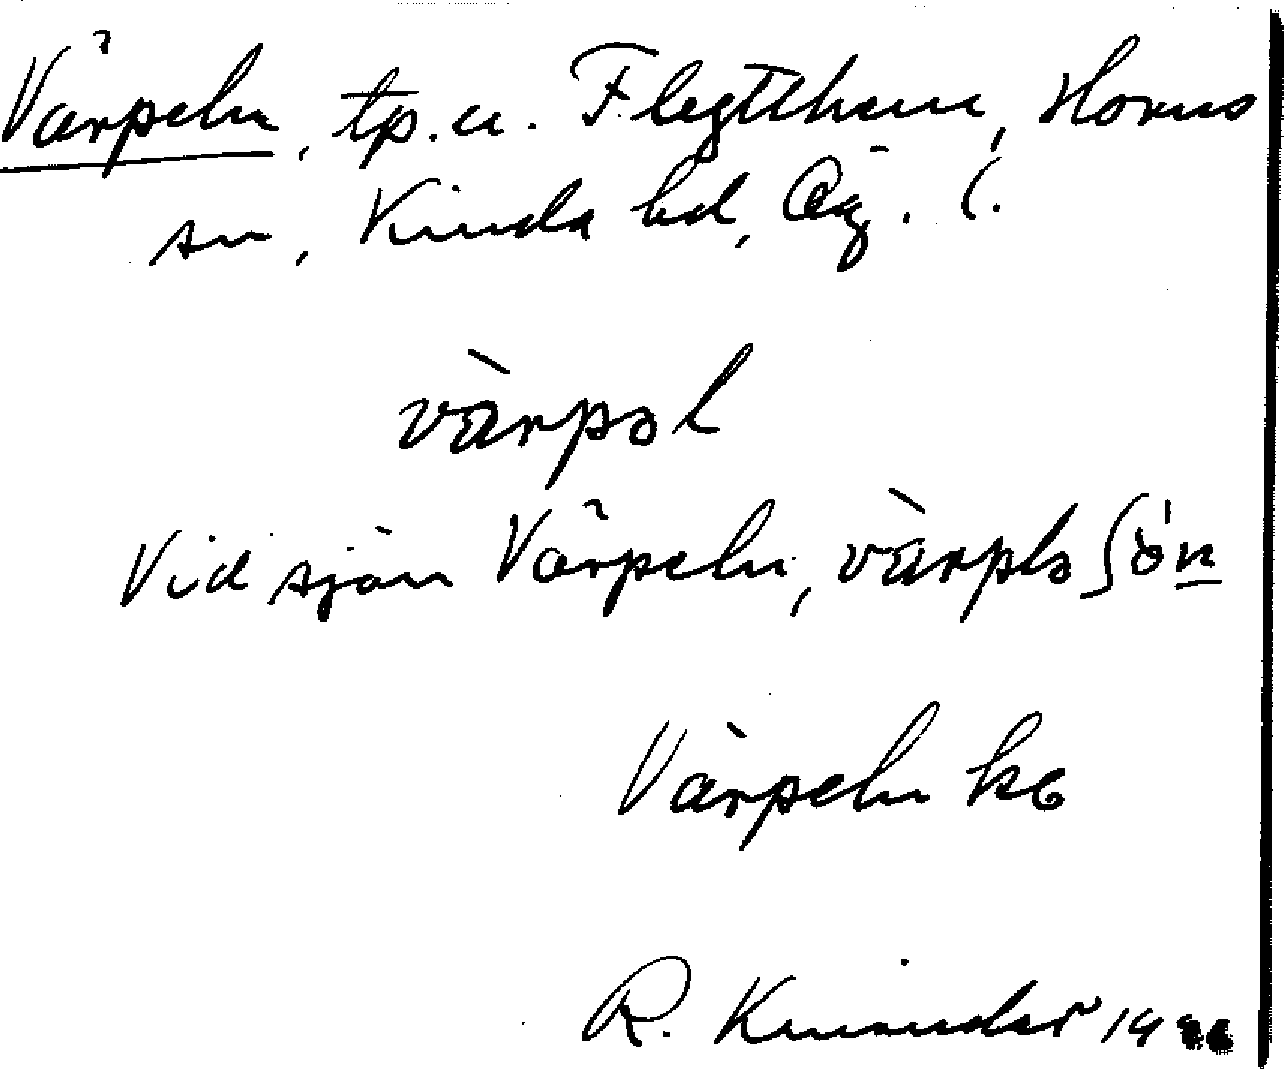 Värpeln, tp. u. Flegtthem, Horns
sn, Kinda hd, Ög. l.
värpəl
Vid sjön Värpeln, värplə ʃön
Värpeln kc
R. Kinander